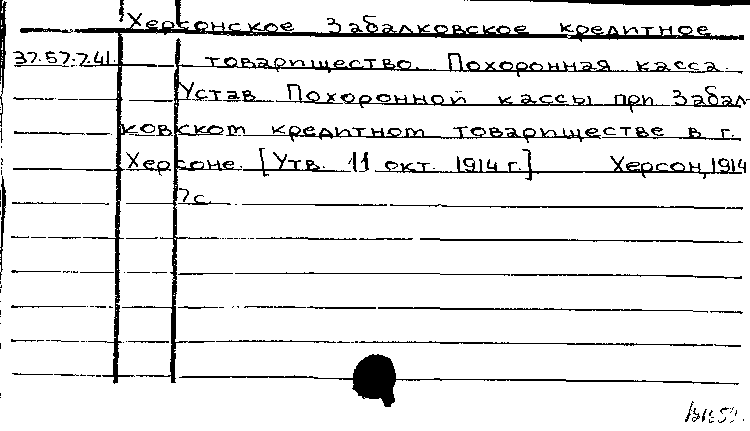 Херсонское Забалковское кредитное
37.57.7.41. товарищество. Похоронная касса.
Устав Похоронной кассы при Забал
ковском кредитном товариществе в г.
Херсоне. [Утв. 11 окт. 1914 г.] Херсон, 1914
7с.